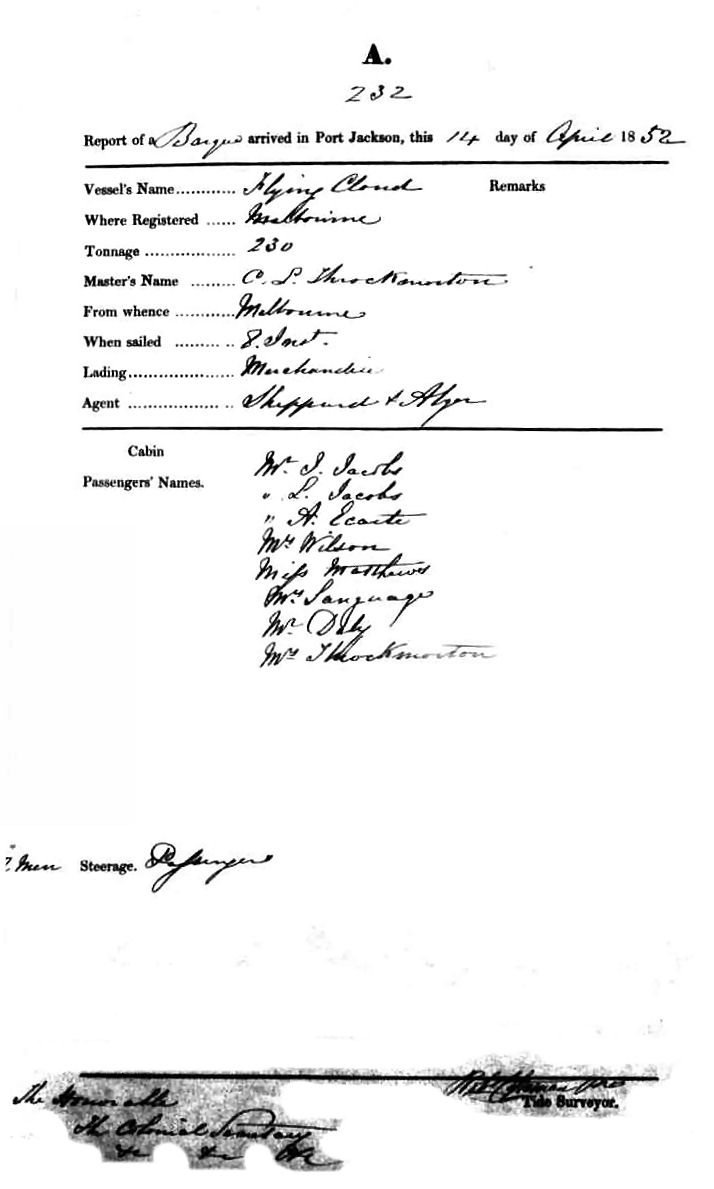 A.
232
Report of a Barque arrived in Port Jackson, this 14 day of April 1852
Vessel's Name............ Flying Cloud Remarks
Where Registered ...... Melbourne
Tonnage .................. 230
Master's Name ......... C. L. Throckmorton
From whence ............ Melbourne
When sailed ......... .. 8. Inst.
Lading...................... Merchandise
Agent .................. .. Sheppard & Alger
Cabin
Passengers' Names.
Mr. I. Jacobs
" L. Jacobs
" A. Ecarte
Mrs Wilson
Miss Matthews
Mrs Language
Mr. Daly
Mrs Throckmorton
Men Steerage. Passengers
The Honorable
The Colonial Secretary
&c &c &c
Tide Surveyor.